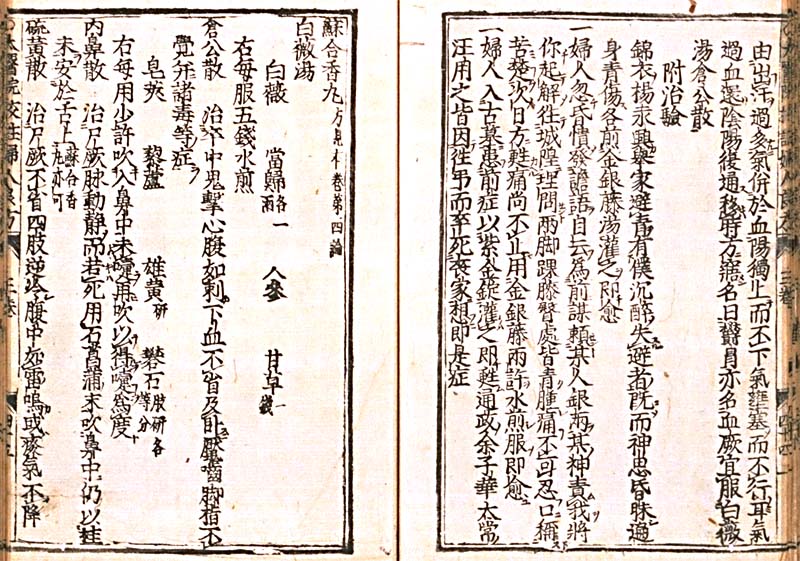 由出汗過多氣併於血陽獨上而不下氣壅塞而不行耳氣
過血還陰陽復通移時方寤名曰欝冒亦名血厥宜服白薇
湯倉公散
附治驗
錦衣楊永興舉家避青有僕沉醉失避者既而神思昏昧遍
身青傷各煎金銀藤湯灌之即愈
一婦人忽昏憒發譫語自云為前謀賴某人銀兩某神責我將
你起解往城隍理問兩脚踝膝臀處皆青腫痛不可忍口稱
苦楚次日方甦痛尚不止用金銀藤兩許水煎服即愈
一婦人入古墓患前症以紫金錠灌之即甦通政余子華太常
汪用之皆因往弔而卒死喪家想即是症
蘇合香丸 方見 卷第四論
白薇湯
白薇 當歸 各一兩 人參 甘草
右每服五錢水煎
倉公散 治卒中鬼擊心腹如刺下血不省及卧魘嚙脚指不
覺并諸毒等症
皂莢 藜蘆 雄黃 研 礬石 研各等分
右每用少許吹入鼻中未嚏再吹以得嚏為度
內鼻散 治尸厥脉動靜而若死用石菖蒲末吹鼻中仍以桂
末安於舌上 蘇合香丸亦可
硫黃散 治尸厥不省四肢逆冷腹中如雷鳴或痰氣不降